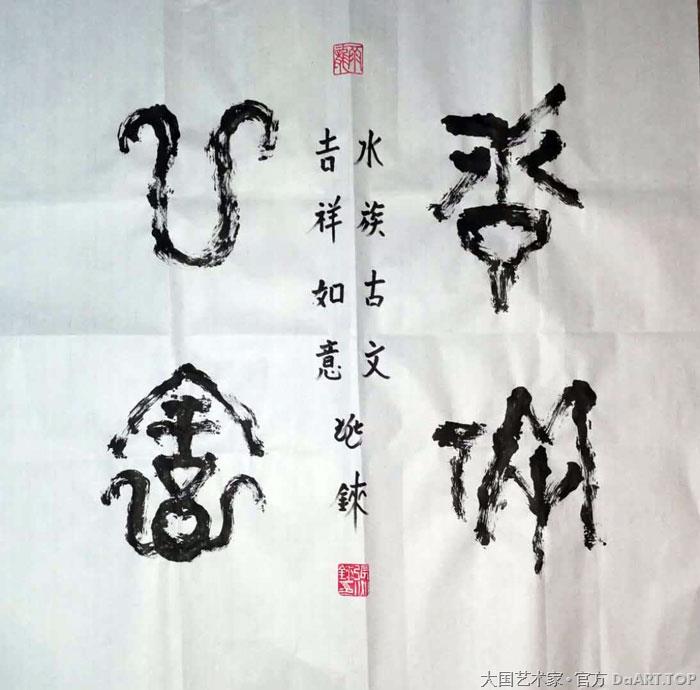 吉祥如意
水族古文
吉祥如意
大国艺术家·官方 DaART.TOP